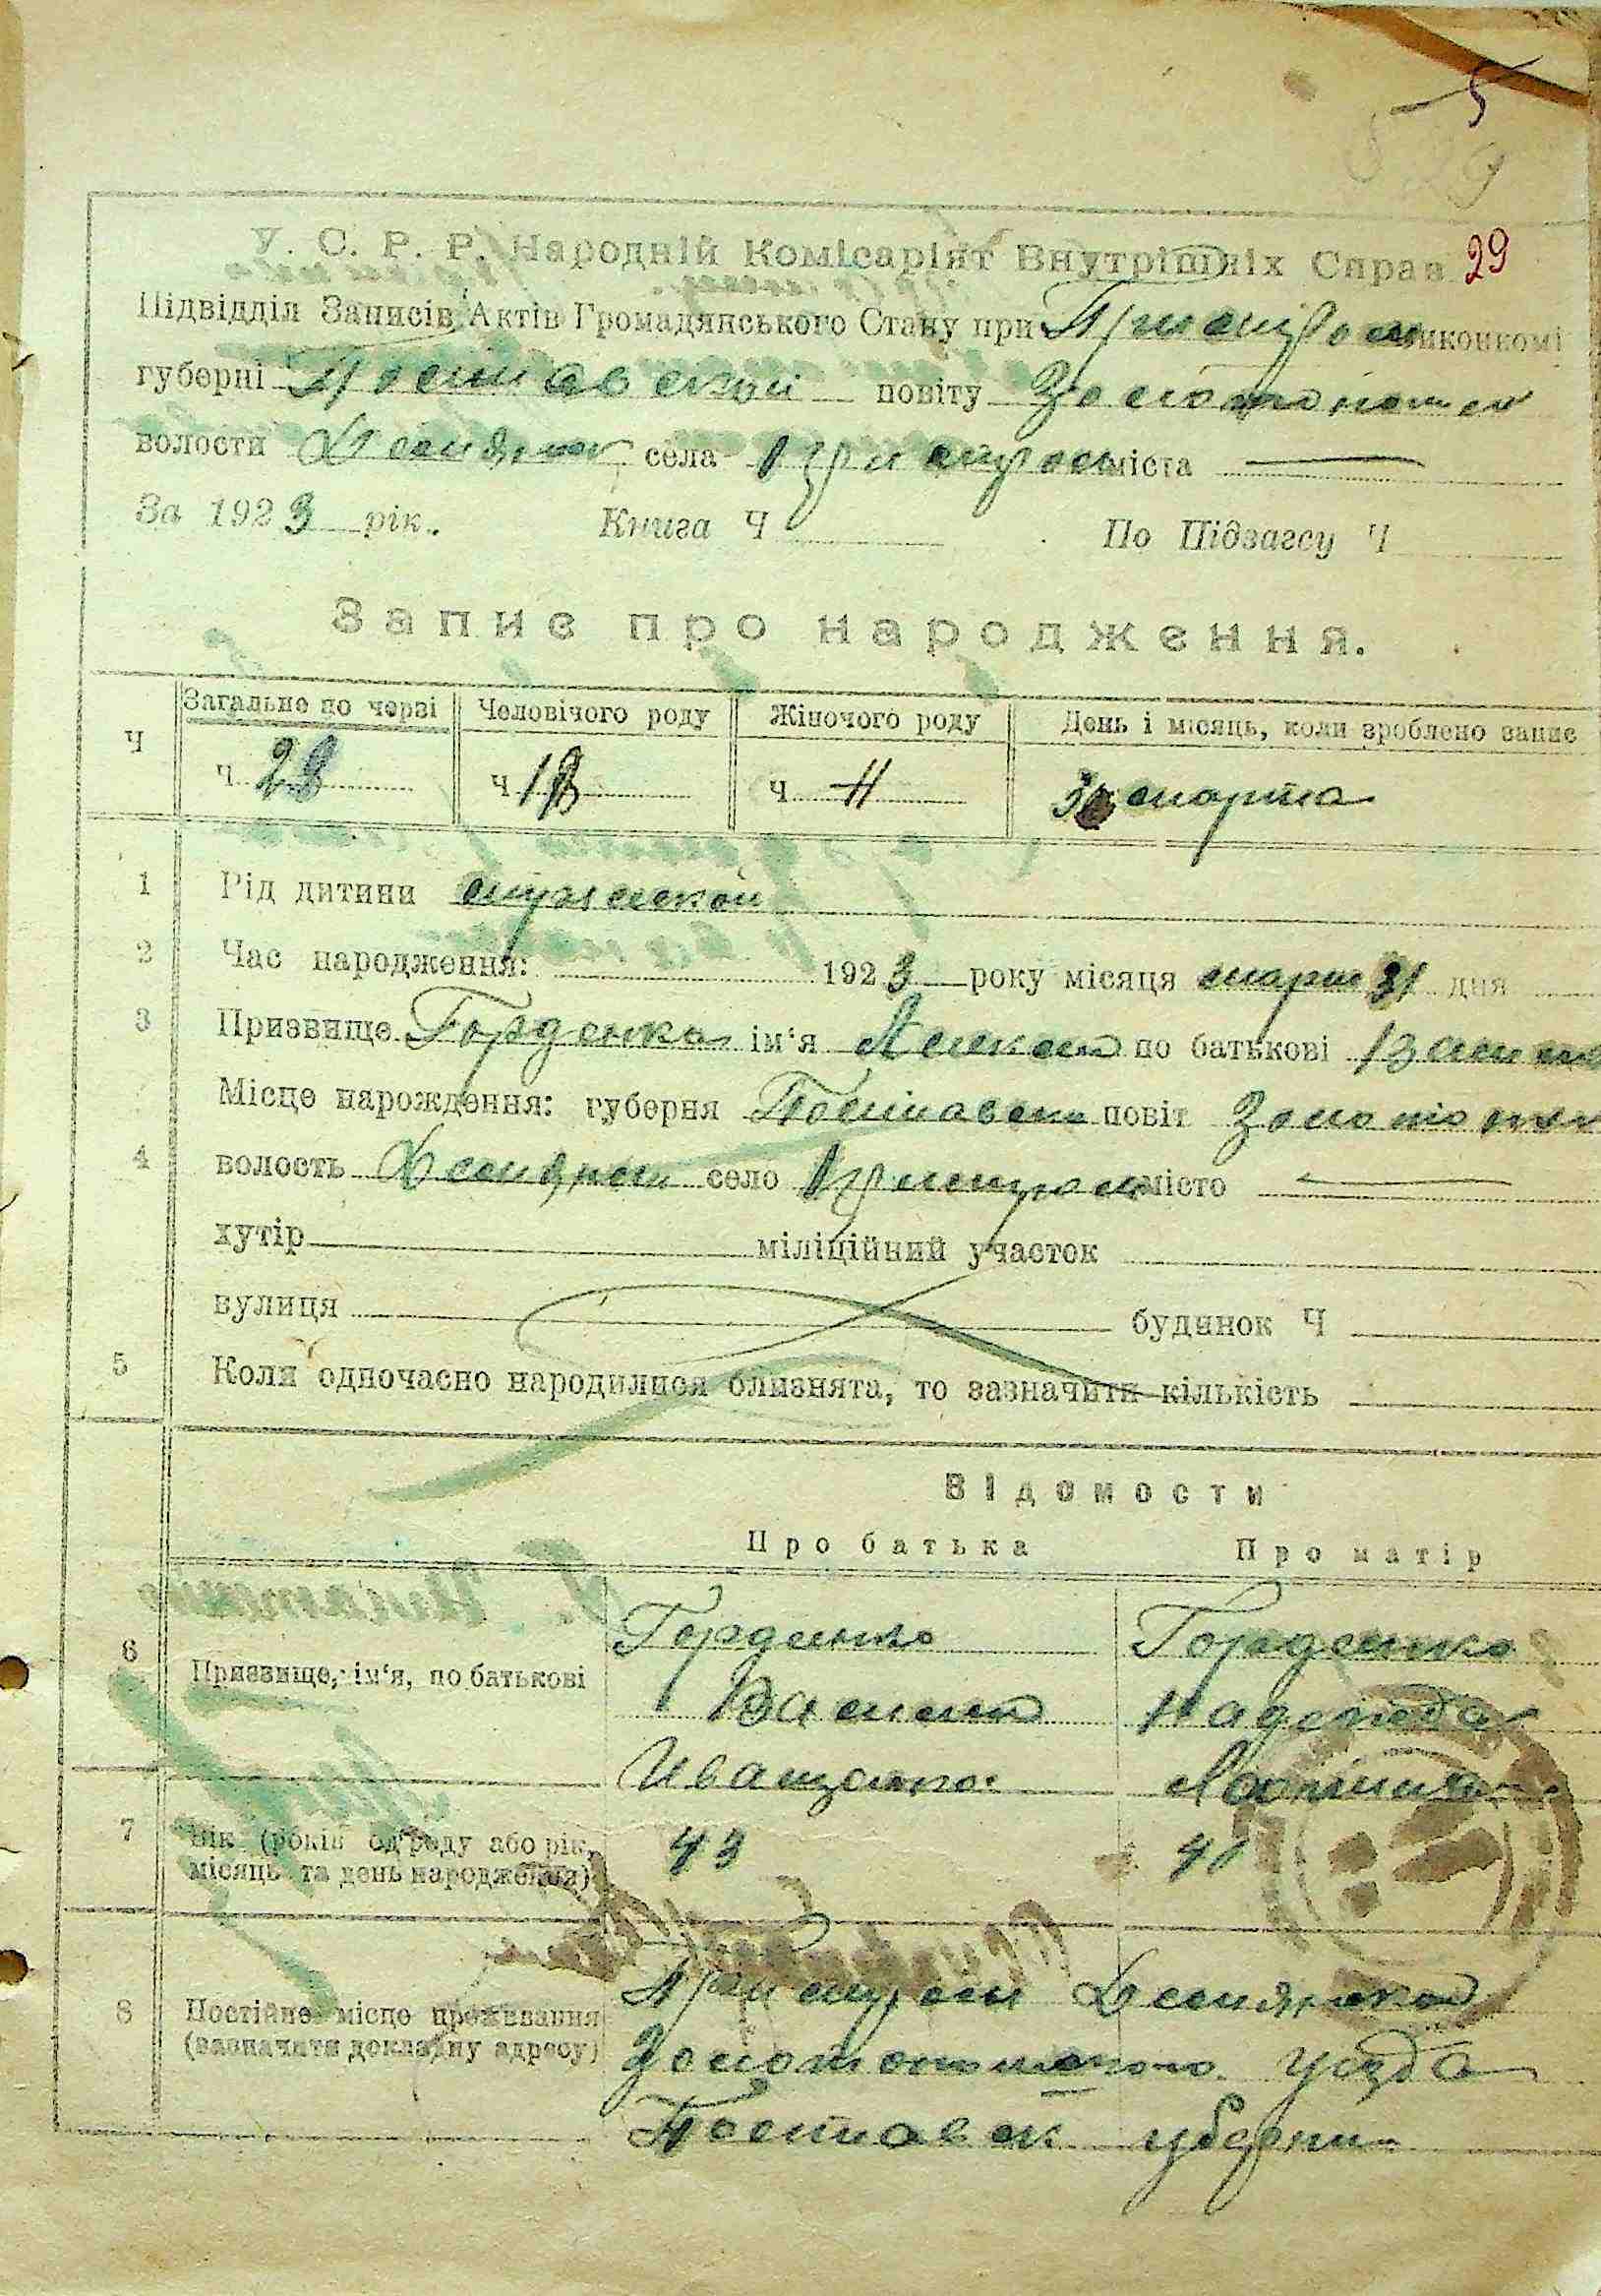 5
5 29
У. С. Р. Р. Народній Комісаріят Внутрішніх Справ 29
Підвідділ Записів Актів Громадянського Стану при виконкомі
губерні Полтавской повіту Золотонош
волости села міста —
За 1923 рік. Книга Ч По Підзагсу Ч
Запис про народження.
Загальне по черзі Человічого роду Жіночого роду День і місяць, коли зроблено запис
Ч Ч 28 Ч 18 Ч 11 марта
1 Рід дитини мужеской
2 Час народження: 1923 року місяця март 31 дня
3 Призвище Горденко ім'я по батькові
Місце нарождення: губерня Полтавск повіт Золотонош
4 волость село місто —
хутір міліційний участок
вулиця будинок Ч
5 Коли одночасно народилися близнята, то зазначити кількість
Відомости
Про батька Про матір
Горденко Горденко
6 Призвище, ім'я, по батькові Надежда
Иващенко
7 Вік (років од роду або рік, 43 41
місяць та день народження)
8 Постійне місце проживання
(зазначити докладну адресу) Золотоношского уезда
Полтавск губерни